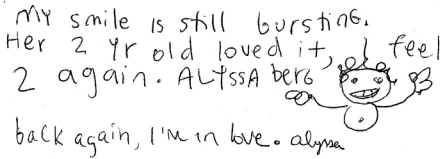 My smile is still bursting.
Her 2 yr old loved it, I feel
2 again. ALYSSA berg
back again, I'm in love. alyssa